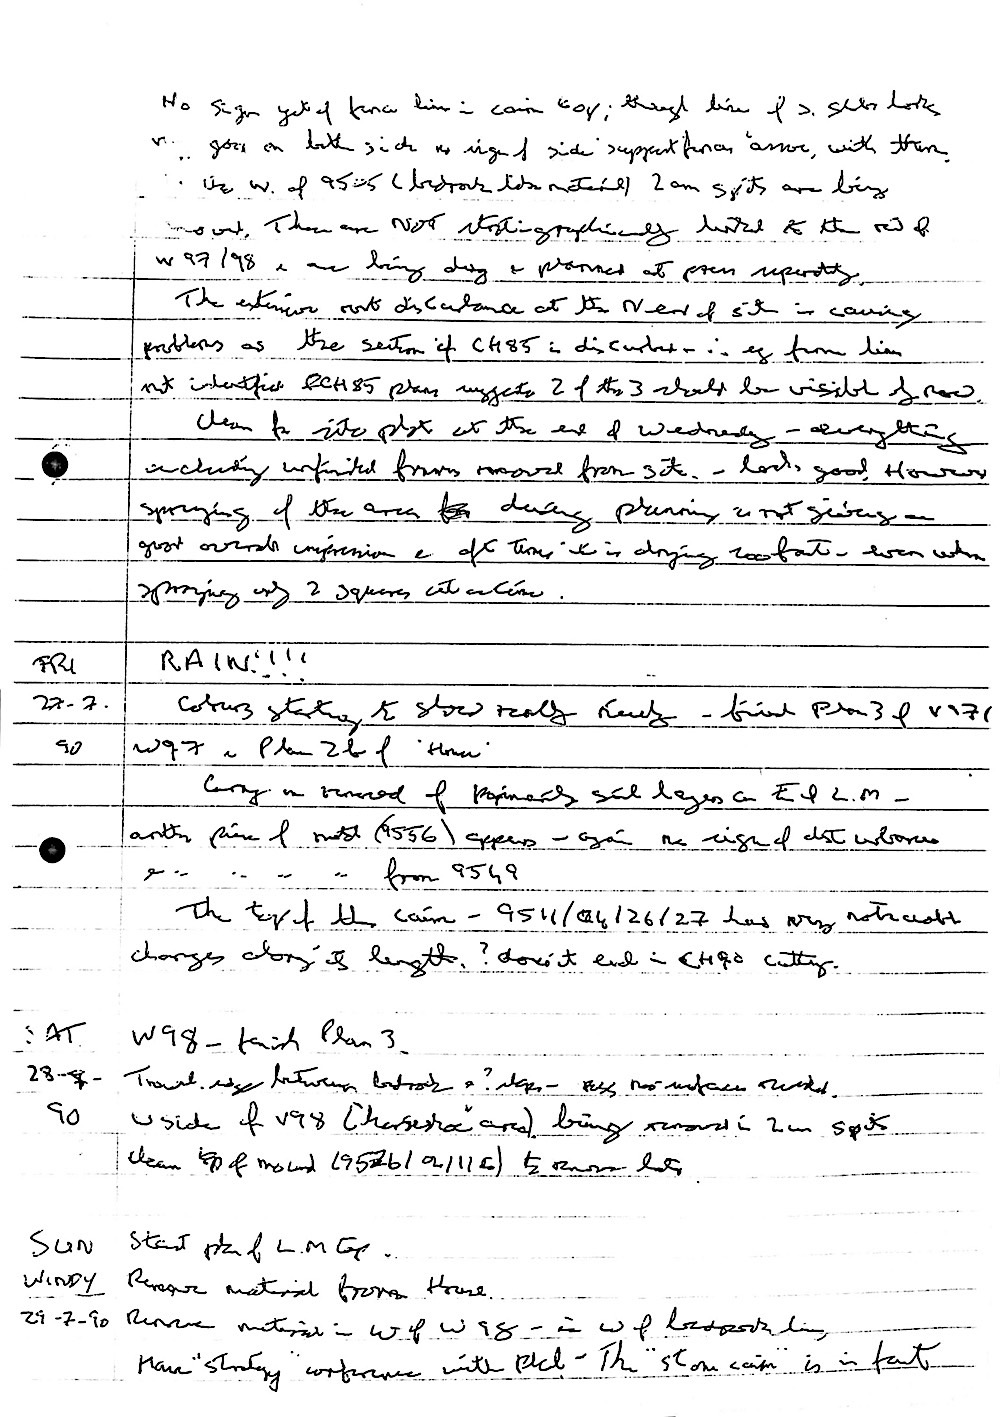 No sign yet of fence line in cairn top; though line of
goes on both side no sign of side "support fences" with them.
W. of 9505 (bedrock like material) 2cm spits are being
These are NOT stratigraphically linked to the rest of
W97/98 & are being dug & planned at present separately.
The extensive root disturbance at the N end of site is causing
problems as the section of CH85 is disturbed - eg fence lines
not identified & CH85 plans suggests 2 of the 3 should be visible by now.
Clean for site photo at the end of Wednesday - everything
including unfinished removed from site. - looks good. However
spraying of the area during planning is not giving a
good overall impression & of times it is drying too fast - even when
spraying only 2 squares at a time.
FRI RAIN!!!!
27-7. Colours starting to show really nicely - finish Plan 3 of V97/
90 W97 & Plan 2b of 'House'
Carry on removal of soil layers on E of L.M -
another piece of metal (9556) appears - again no sign of disturbance
" " " " from 9549
The top of the cairn - 9511/04/26/27 has very noticeable
changes along its length. ? doesn't end in CH90 cutting.
SAT W98 - finish Plan 3.
28-8- Trowel edge between bedrock & ? - no surface
90 W side of V98 ("horseshoe" area) being removed in 2cm spits
Clean top of mound (9526/02/11 ) to remove
SUN Start plan of L.M top.
WINDY Remove material from House.
29-7-90 Remove material in W of W98 - in W of bedrock line,
Have "strategy" conference with - The "stone cairn" is in fact